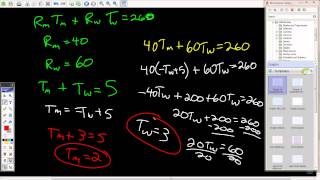 Rm Tm + Rw T = 260
Rm = 40
Rw = 60
Tm + Tw = 5
Tm = -Tw + 5
Tm + 3 = 5
Tm = 2
40Tm + 60Tw = 260
40(-Tw+5) + 60Tw = 260
-40Tw + 200 + 60Tw = 260
20Tw + 200 = 260
-200 -200
20Tw = 60
20 20
Tw = 3